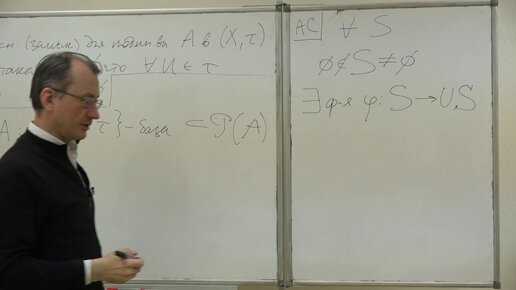 (замык) для подмн-ва A в (X, τ)
что ∀ U ∈ τ
τ} - база ⊂ 𝒫(A)
AC ∀ S
∅ ∉ S ≠ ∅
∃ ф-я φ: S → ∪S